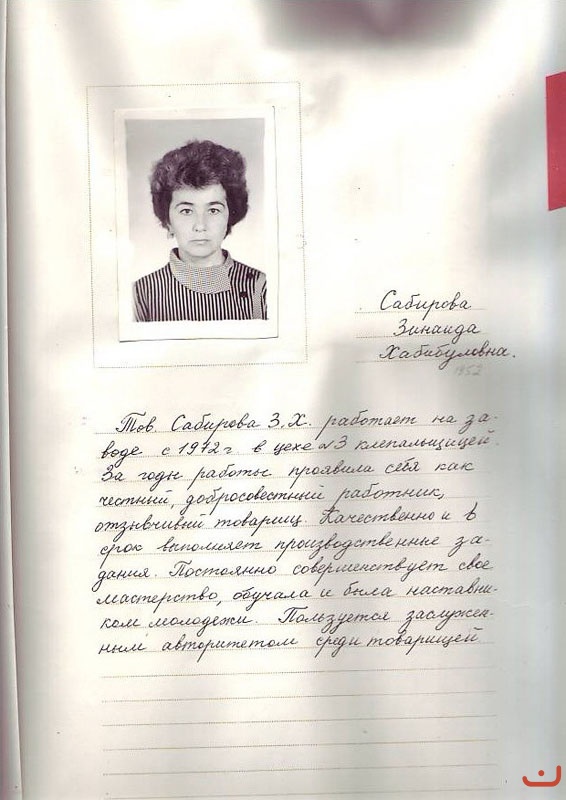 Сабирова
Зинаида
Хабибуловна.
1952
Тов. Сабирова З.Х. работает на за-
воде с 1972 г. в цехе №3 клепальщицей.
За годы работы проявила себя как
честный, добросовестный работник,
отзывчивый товарищ. Качественно и в
срок выполняет производственные за-
дания. Постоянно совершенствует свое
мастерство, обучала и была наставни-
ком молодежи. Пользуется заслужен-
ным авторитетом среди товарищей.